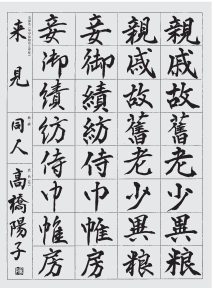 親戚故舊老少異粮
親戚故舊老少異粮
妾御績紡侍巾帷房
妾御績紡侍巾帷房
見 同人 高橋陽子